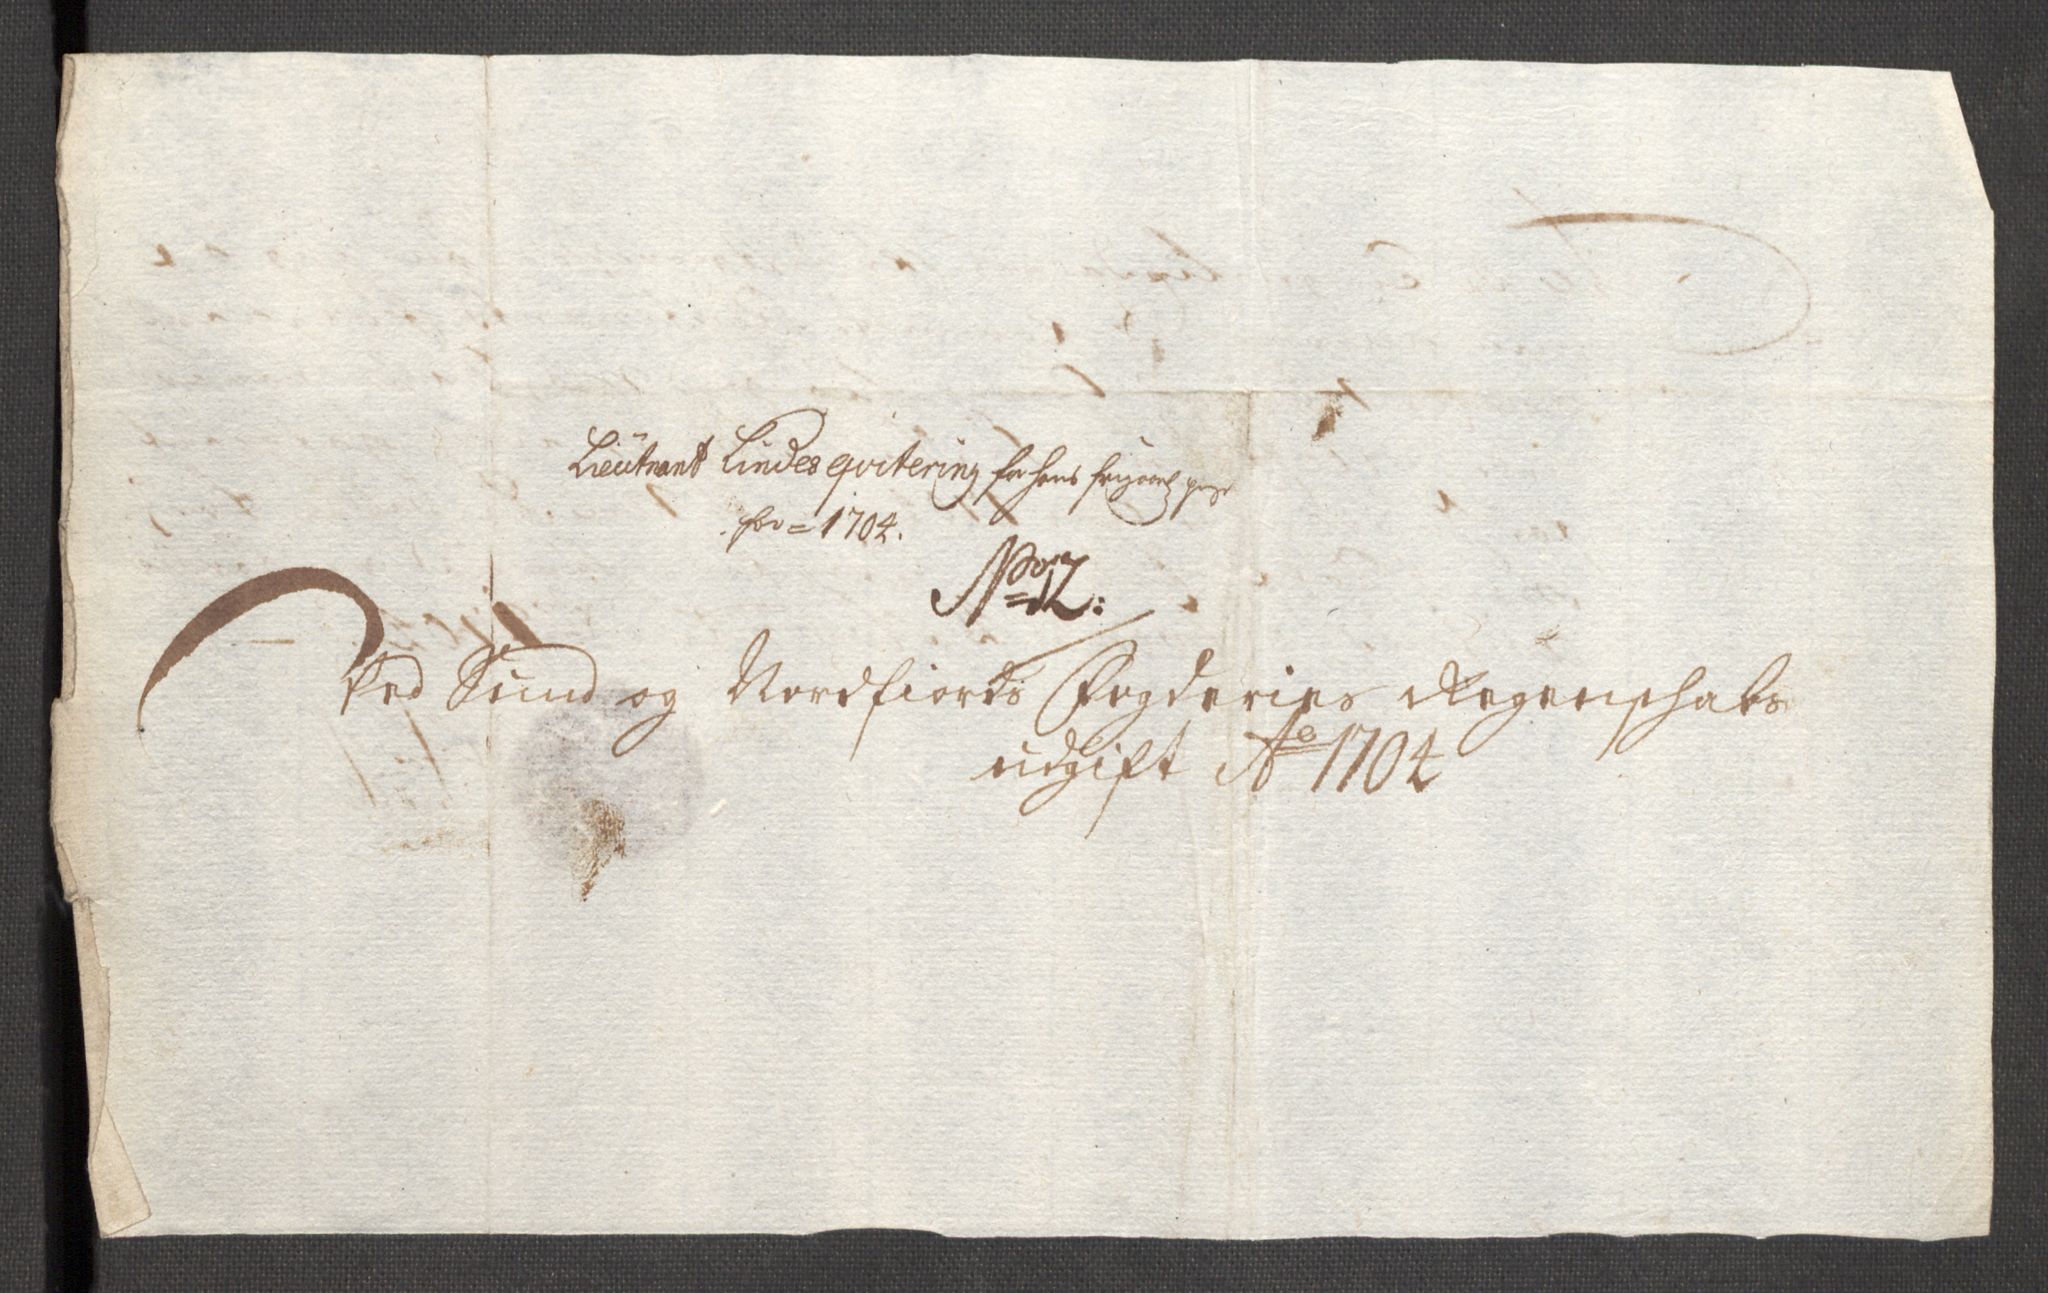 Lieütnant Lindes qvitering for hans
for = 1704.
No 12:
Ved Sünd og Nordfiords Fogderies Regenschabs
udgift Ao 1704